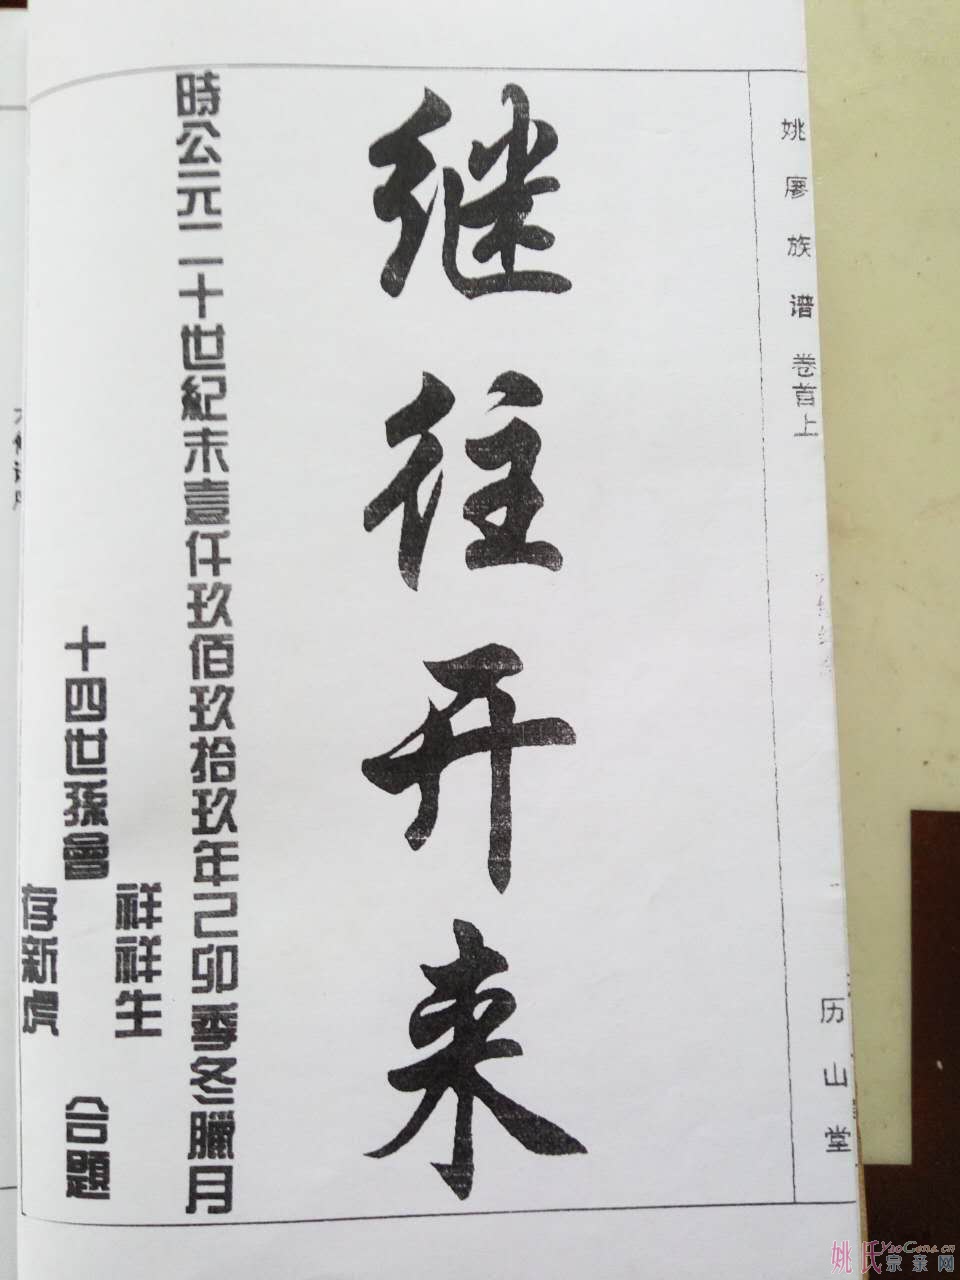 姚廖族谱 卷首上
历山堂
继往开来
時公元二十世紀末壹仟玖佰玖拾玖年己卯季冬臘月
十四世孫會
祥祥生
存新虎
合題
姚氏宗亲网
YaoGens.cn